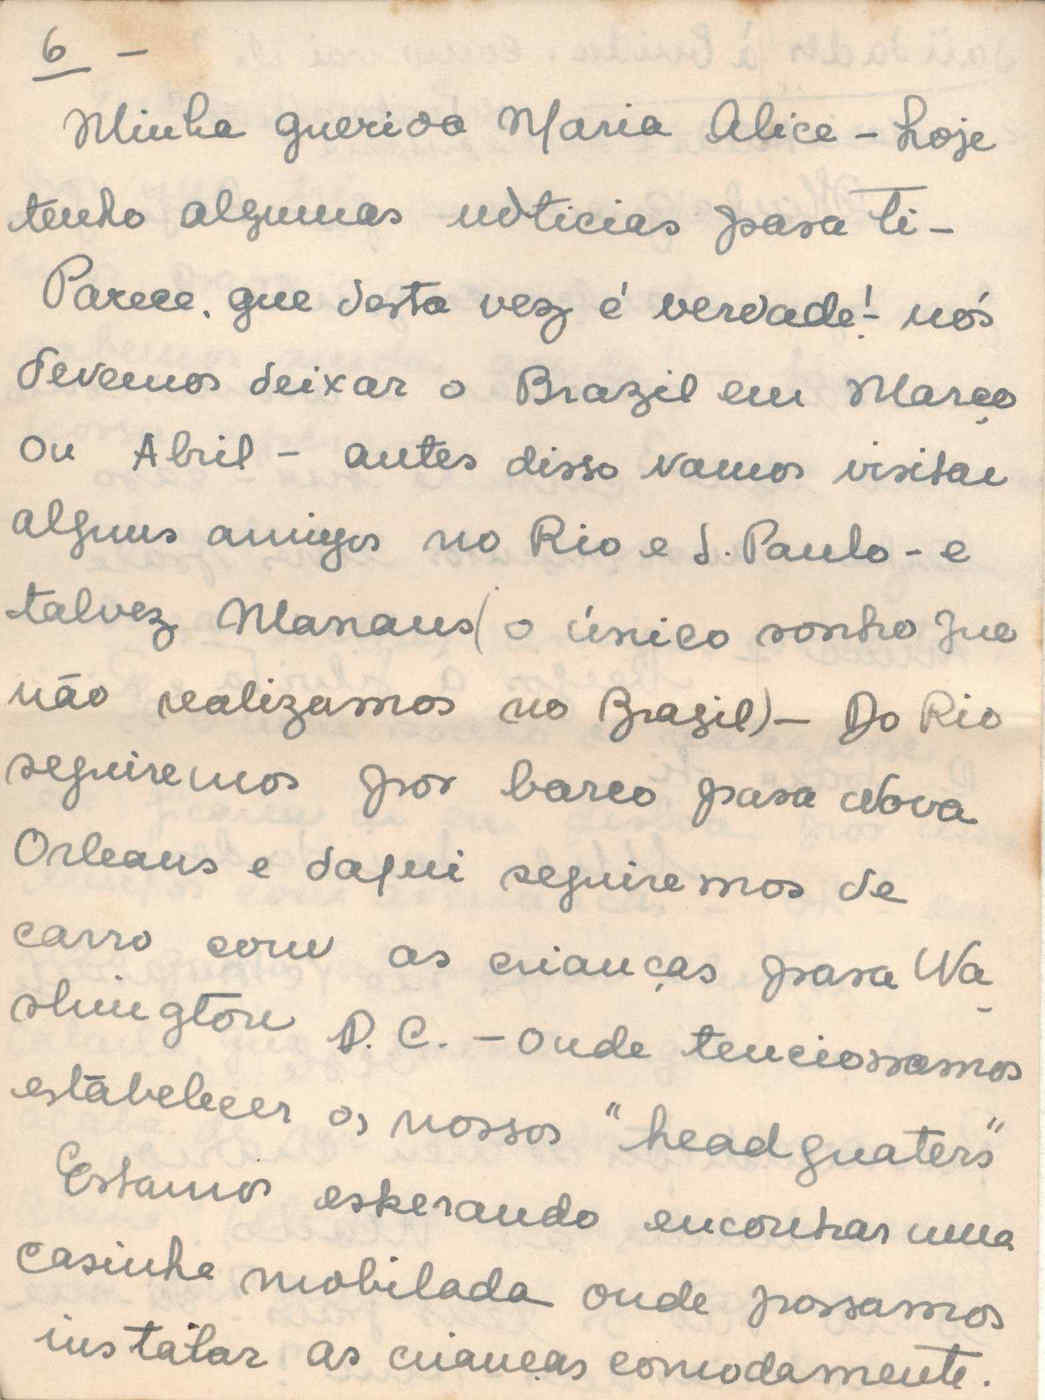 6 -
Minha querida Maria Alice - hoje
tenho algumas nòticias para ti -
Parece. que desta vez é verdade! - nós
devemos deixar o Brazil em Março
ou Abril - antes disso vamos visitar
alguns amigos no Rio e S. Paulo - e
talvez Manaus (o único sonho que
não realizamos no Brazil) - Do Rio
seguiremos por barco para Nova
Orleans e daqui seguiremos de
carro com as crianças para Wa-
shington D.C. - onde tencionamos
estabelecer os nossos "headquaters"
Estamos esperando encontrar uma
casinha mobilada onde possamos
instalar as crianças comodamente.